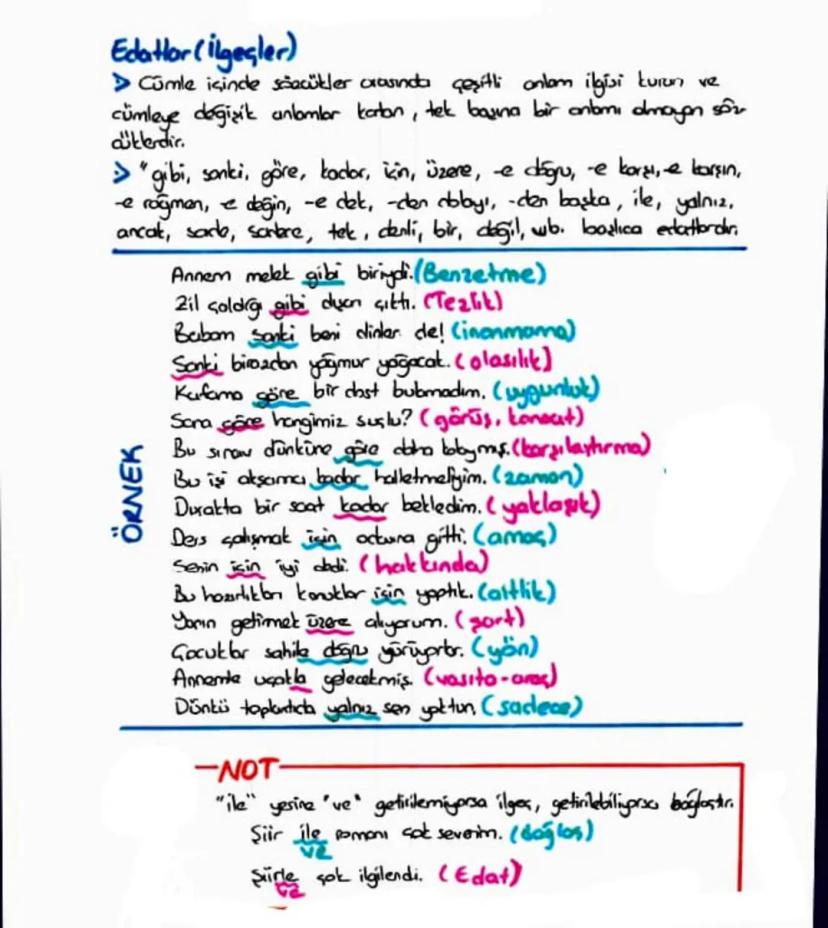 Edatlar (İlgeçler)
> Cümle içinde sözcükler arasında çeşitli anlam ilgisi kuran ve
cümleye değişik anlamlar katan, tek başına bir anlamı olmayan söz
cüklerdir.
> "gibi, sanki, göre, kadar, için, üzere, -e doğru, -e karşı, -e karşın,
-e rağmen, -e değin, -e dek, -den dolayı, -den başka, ile, yalnız,
ancak, sade, sadece, tek, denli, bir, değil, vb. başlıca edatlardır.
Annem melek gibi biriydi. (Benzetme)
Zil çaldığı gibi dışarı çıktı. (Tezlik)
Babam sanki beni dinler de! (inanmama)
Sanki birazdan yağmur yağacak. (olasılık)
Kafama göre bir dost bulamadım. (uygunluk)
Sana göre hangimiz suçlu? (görüş, kanaat)
Bu sınav dünküne göre daha kolaymış. (karşılaştırma)
Bu işi akşama kadar halletmeliyim. (zaman)
Durakta bir saat kadar bekledim. (yaklaşık)
ÖRNEK
Ders çalışmak için odasına gitti. (amaç)
Senin için iyi dedi. (hakkında)
Bu hazırlıkları konuklar için yaptık. (aitlik)
Yarın getirmek üzere alıyorum. (şart)
Çocuklar sahile doğru yürüyorlar. (yön)
Annemle uçakla gelecekmiş. (vasıta-araç)
Dünkü toplantıda yalnız sen yoktun. (sadece)
NOT
"ile" yerine "ve" getirilemiyorsa ilgeç, getirilebiliyorsa bağlaçtır.
Şiir ile romanı çok severim. (bağlaç)
ve
Şiirle çok ilgilendi. (Edat)
ve